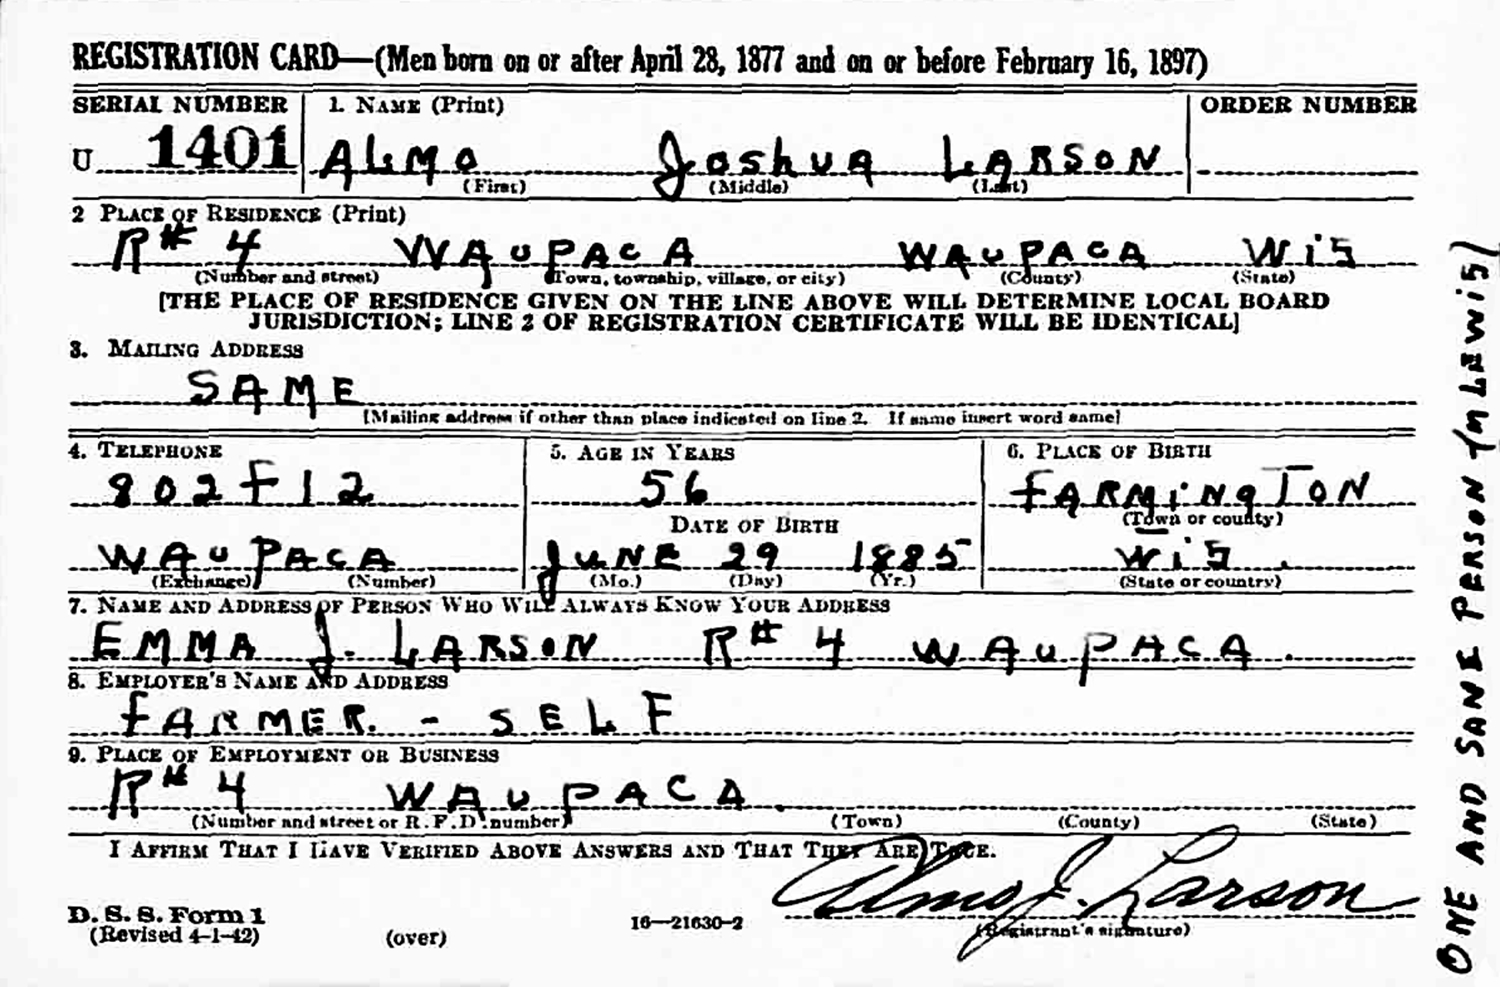 REGISTRATION CARD—(Men born on or after April 28, 1877 and on or before February 16, 1897)
SERIAL NUMBER 1. NAME (Print) ORDER NUMBER
U 1401 ALMO Joshua LARSON
(First) (Middle) (Last)
2 PLACE OF RESIDENCE (Print)
R# 4 WAUPACA WAUPACA WiS
(Number and street) (Town, township, village, or city) (County) (State)
[THE PLACE OF RESIDENCE GIVEN ON THE LINE ABOVE WILL DETERMINE LOCAL BOARD
JURISDICTION; LINE 2 OF REGISTRATION CERTIFICATE WILL BE IDENTICAL]
3. MAILING ADDRESS
SAME
[Mailing address if other than place indicated on line 2. If same insert word same]
4. TELEPHONE 5. AGE IN YEARS 6. PLACE OF BIRTH
802F12 56 FARMiNgTON
DATE OF BIRTH (Town or county)
WAUPACA JUNE 29 1885 WiS.
(Exchange) (Number) (Mo.) (Day) (Yr.) (State or country)
7. NAME AND ADDRESS OF PERSON WHO WILL ALWAYS KNOW YOUR ADDRESS
EMMA J. LARSON R# 4 WAUPACA.
8. EMPLOYER'S NAME AND ADDRESS
FARMER. - SELF
9. PLACE OF EMPLOYMENT OR BUSINESS
R# 4 WAUPACA.
(Number and street or R. F. D. number) (Town) (County) (State)
I AFFIRM THAT I HAVE VERIFIED ABOVE ANSWERS AND THAT THEY ARE TRUE.
Almo J. Larson
D. S. S. Form 1
(Revised 4-1-42) (over) 16—21630-2 (Registrant's signature)
ONE AND SANE PERSON (M LEWiS)